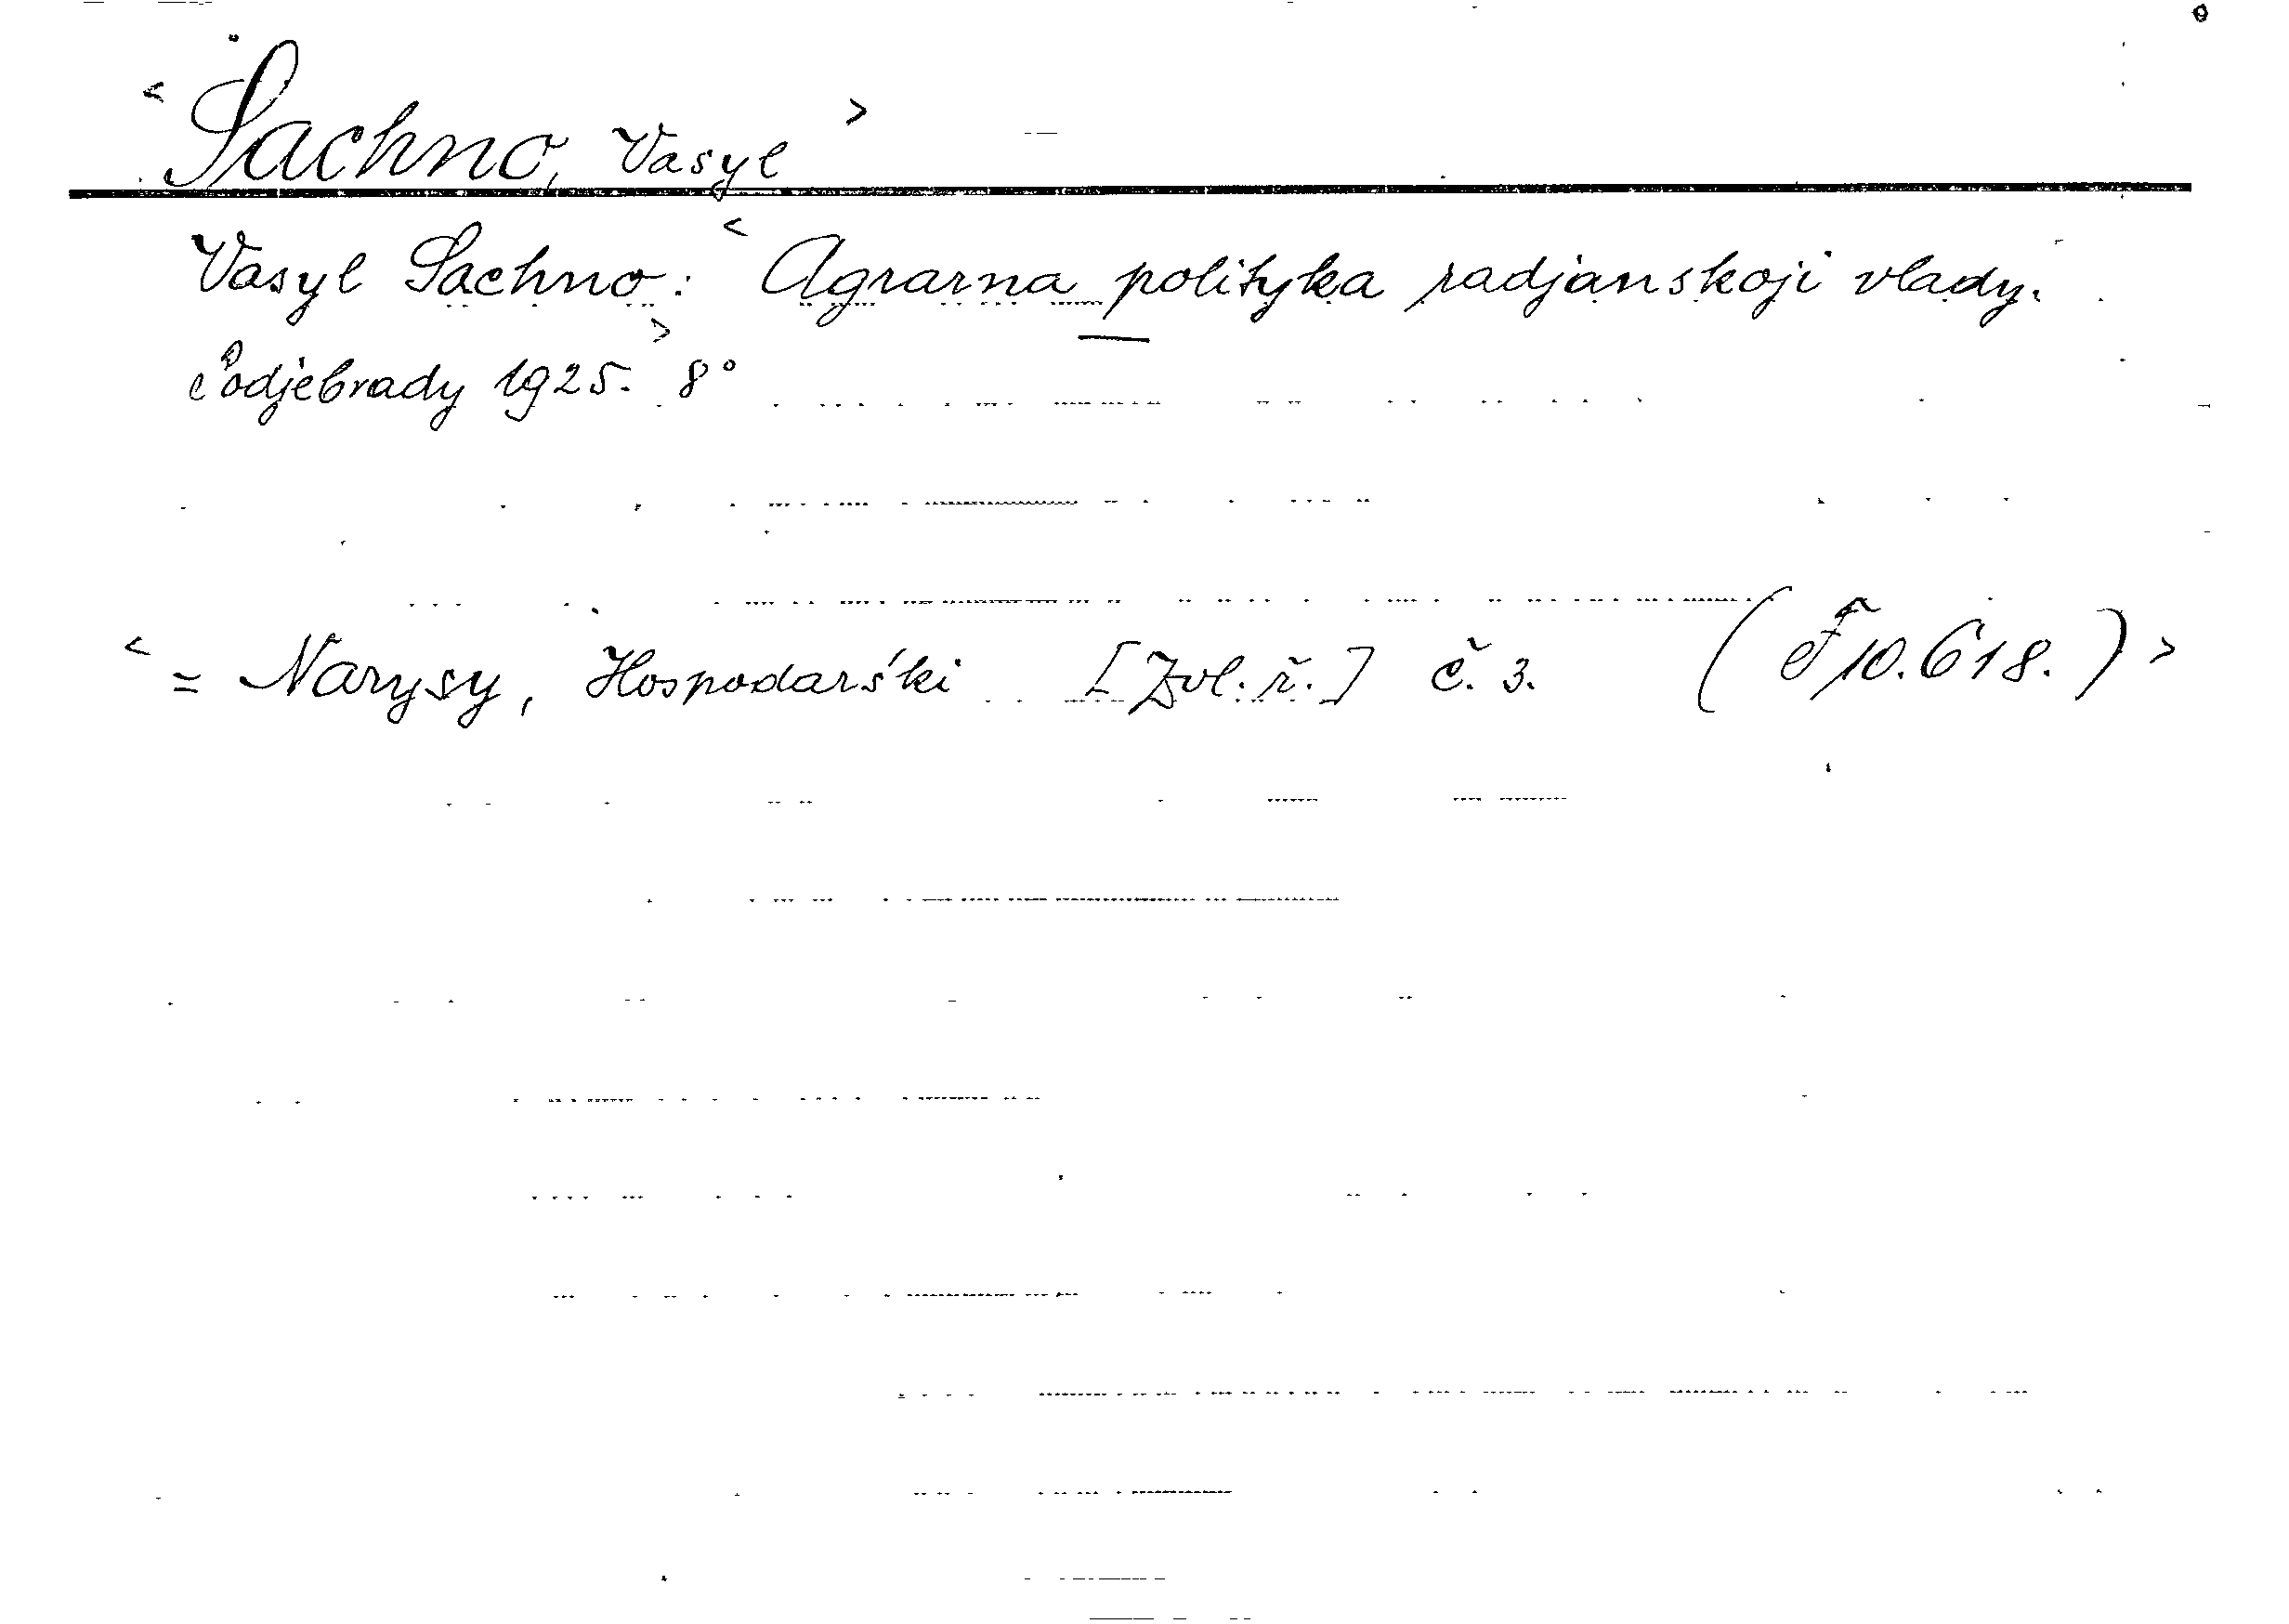 < Sachno, Vasyl >
Vasyl Sachno: < Agrarna polityka radjanskoji vlady.
Poděbrady 1925. > 8°
< = Narysy, Hospodarśki [Zvl. ř.] č. 3. (F 10.618.) >